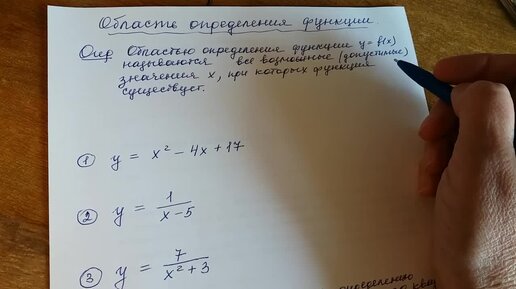 Область определения функции.
Опр Областью определения функции y = f(x)
называются все возможные (допустимые)
значения x, при которых функция
существует.
① y = x² − 4x + 17
② y = 1/(x − 5)
③ y = 7/(x² + 3)
определению